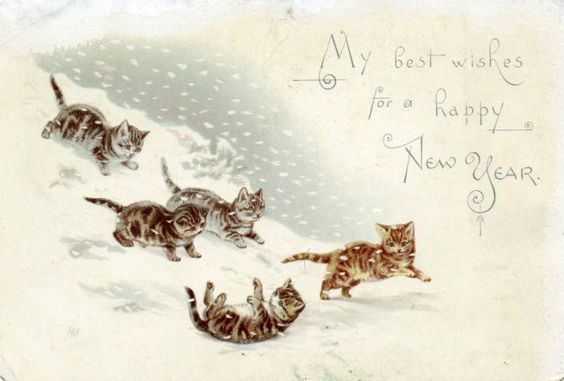 My best wishes
for a happy
New Year.